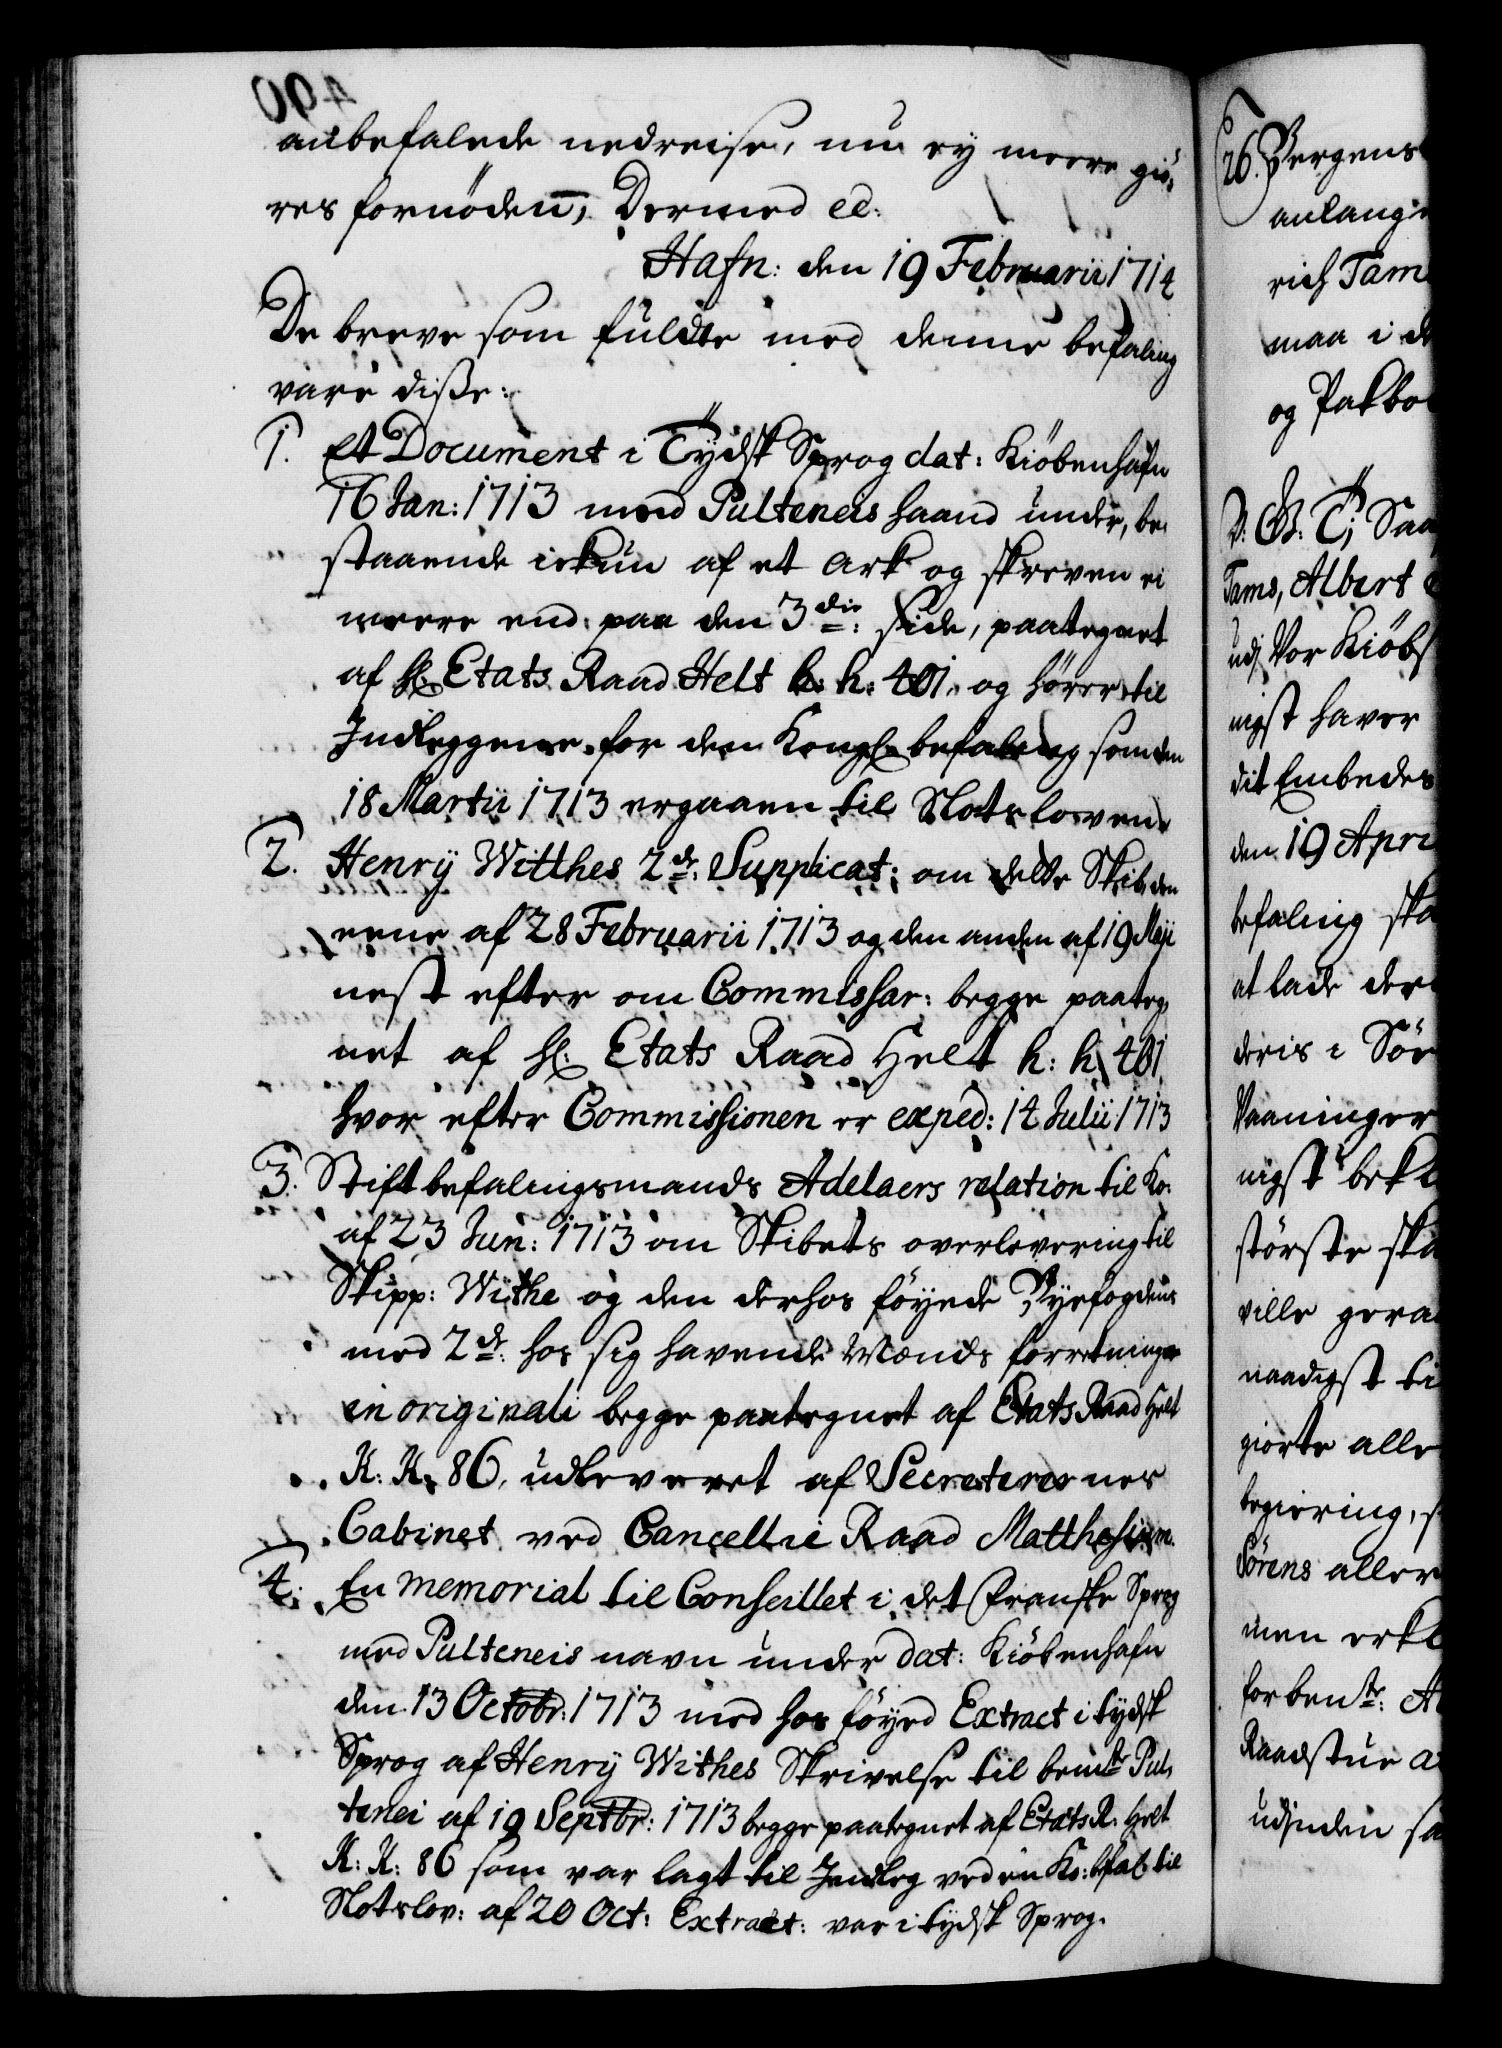 490
anbefalede nedreise, nu ey meere giö,
res fornöden, Dermed ec:
Hafn: den 19 Februarii 1714
De breve som fuldte med denne befaling
vare disse:
1. Et Document i Tÿdsk Sprog dat: Kiöbenhafn
16 Jan: 1713 med Pulteneis haand under, be
staaende ickun af et Ark og skreven ei
meere end paa den 3die: Side, paategnet
af Hr: Etats Raad Helt h: h: 401, og hörer til
Indleggene for den Kongl: befaling som den
18 Martii 1713 ergaaen til Slotsloven
2. Henrÿ Witthes 2de: Supplicat: om dette Skib den
eene af 28 Februarii 1713 og den anden af 19 Maji
nest efter om Commissar: begge paateg,
net af Hr: Etats Raad Helt h: h: 401
hvor efter Commissionen er exped: 14 Julii 1713
3. Stiftbefalingsmands Adelaers relation til Ko:
af 23 Jun: 1713 om Skibets overlevering til
Skipp: Withe og den derhos föÿede Byefogdens
med 2de: hos sig havende Mænds forretninger
in originali begge paategnet af Etats Raad Helt
K: K: 86, udleveret af Secreterernes
Cabinet ved Cancellie Raad Matthesium.
4. En memorial til Conseillet i det Franske Sprog
med Pulteneis navn under dat: Kiöbenhafn
den 13 Octobr: 1713 med hos föÿed Extract i tÿdsk
Sprog af Henrÿ Withes Skrivelse til bemte Pul,
tenei af 19 Septbr: 1713 begge paategnet af Etats R: Helt
K: K: 86 som var lagt til Indleg ved en Ko: befal: til
Slotslov: af 20 Oct: Extract: var i tÿdsk Sprog.
26. Bergens
anlang
rich Tam
maa i d
og Pakbo
V: G: T; Saa
Tams, Albert
udj Vor Kiöbs
nigst haver
dit Embedes
den 19 Apri
befaling ska
at lade der
deris i Sör
Vaaninger
nigst bekl
störste ska
ville gera
naadigst ti
giorte alle
begiering, s
Sörens aller
men erkl
forbente: A
Raadstue a
udjnden sa